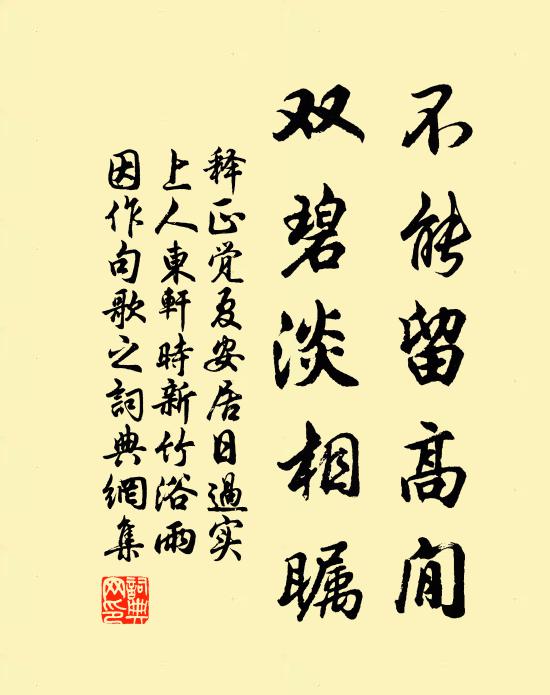 不能留高閒
双碧淡相瞩
释正觉夏安居日過实
上人東軒時新竹浴雨
因作句歌之詞典網集
詞典
网印